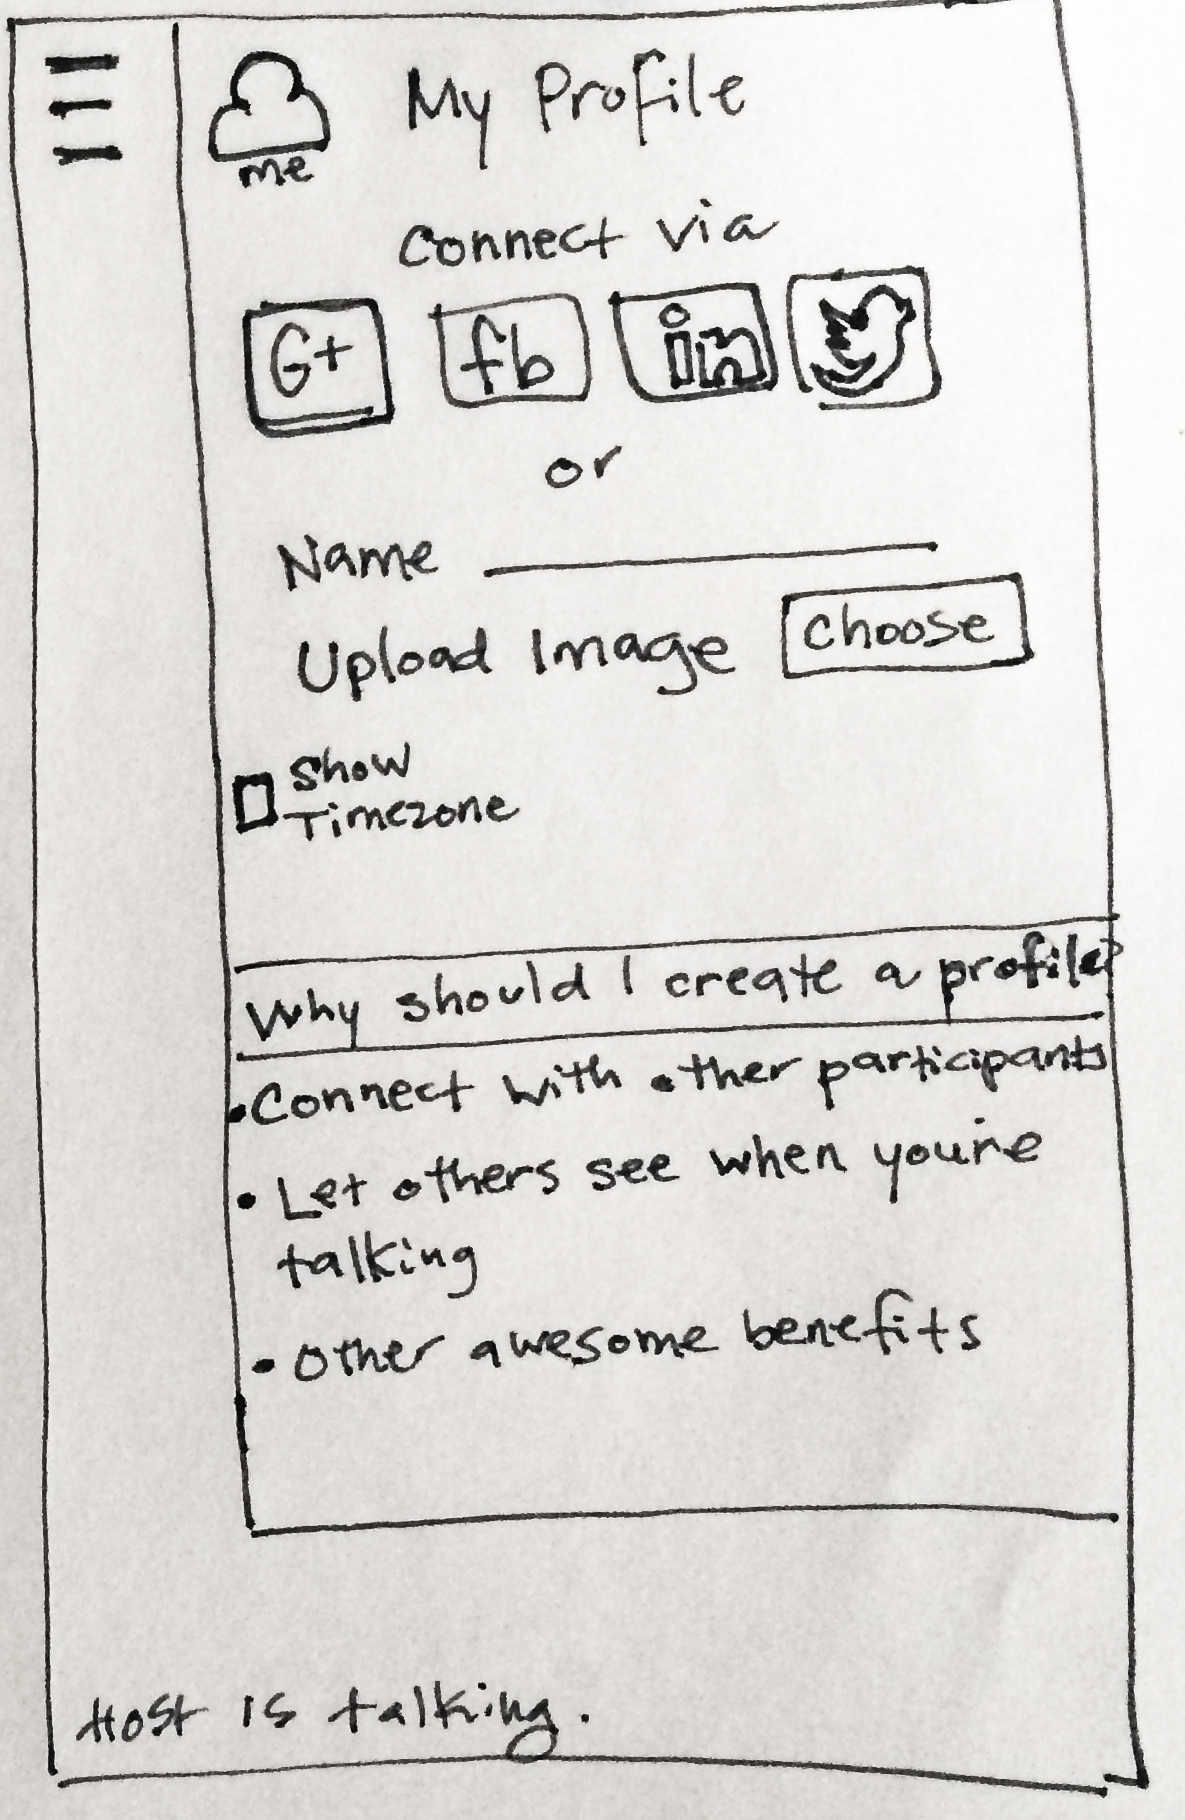 My Profile
me
Connect via
G+ fb in
or
Name
Upload Image choose
Show
Timezone
Why should I create a profile?
• Connect with other participants
• Let others see when you're
talking
• Other awesome benefits
Host is talking.